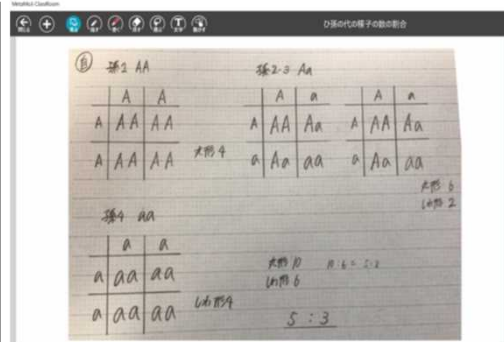 MetaMoJi ClassRoom
ひ孫の代の種子の数の割合
自 孫1 AA
A A
A AA AA
A AA AA
丸形4
孫2・3 Aa
A a
A AA Aa
a Aa aa
A a
A AA Aa
a Aa aa
丸形 6
しわ形 2
孫4 aa
a a
a aa aa
a aa aa
しわ形4
丸形 10
しわ形 6
10:6 = 5:3
5 : 3